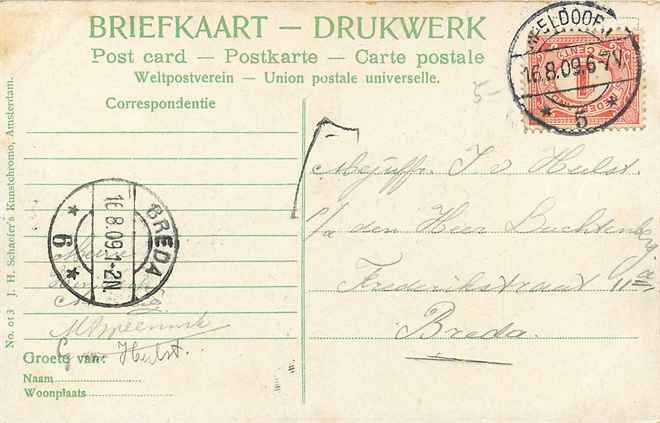 BRIEFKAART — DRUKWERK
Post card — Postkarte — Carte postale
Weltpostverein — Union postale universelle.
Correspondentie
16.8.09.6-7V.
5
5-
Mejuffr. J v Hulst.
p/a den Heer Luchtenberg
Frederikstraat 11a
Breda.
BREDA
16.8.09.1-2N.
6
Hulst.
Groete van:
Naam
Woonplaats
No. 613 J. H. Schaefer's Kunstchromo, Amsterdam.